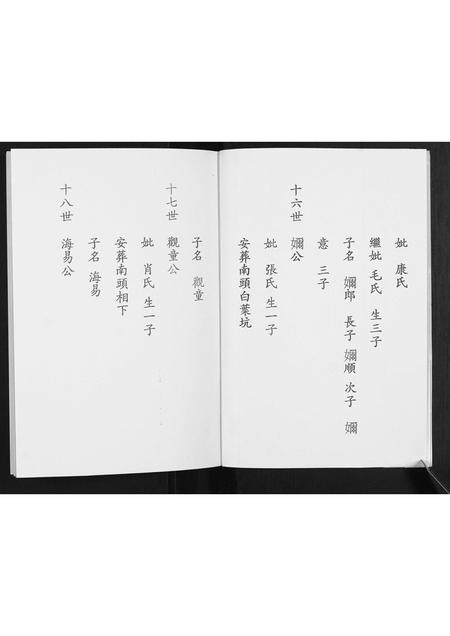 妣 康氏
繼妣 毛氏 生三子
子名 嬭郎 長子 嬭順 次子 嬭
意 三子
十六世 嬭公
妣 張氏 生一子
安葬南頭白葉坑
子名 觀童
十七世 觀童公
妣 肖氏 生一子
安葬南頭相下
子名 海易
十八世 海易公